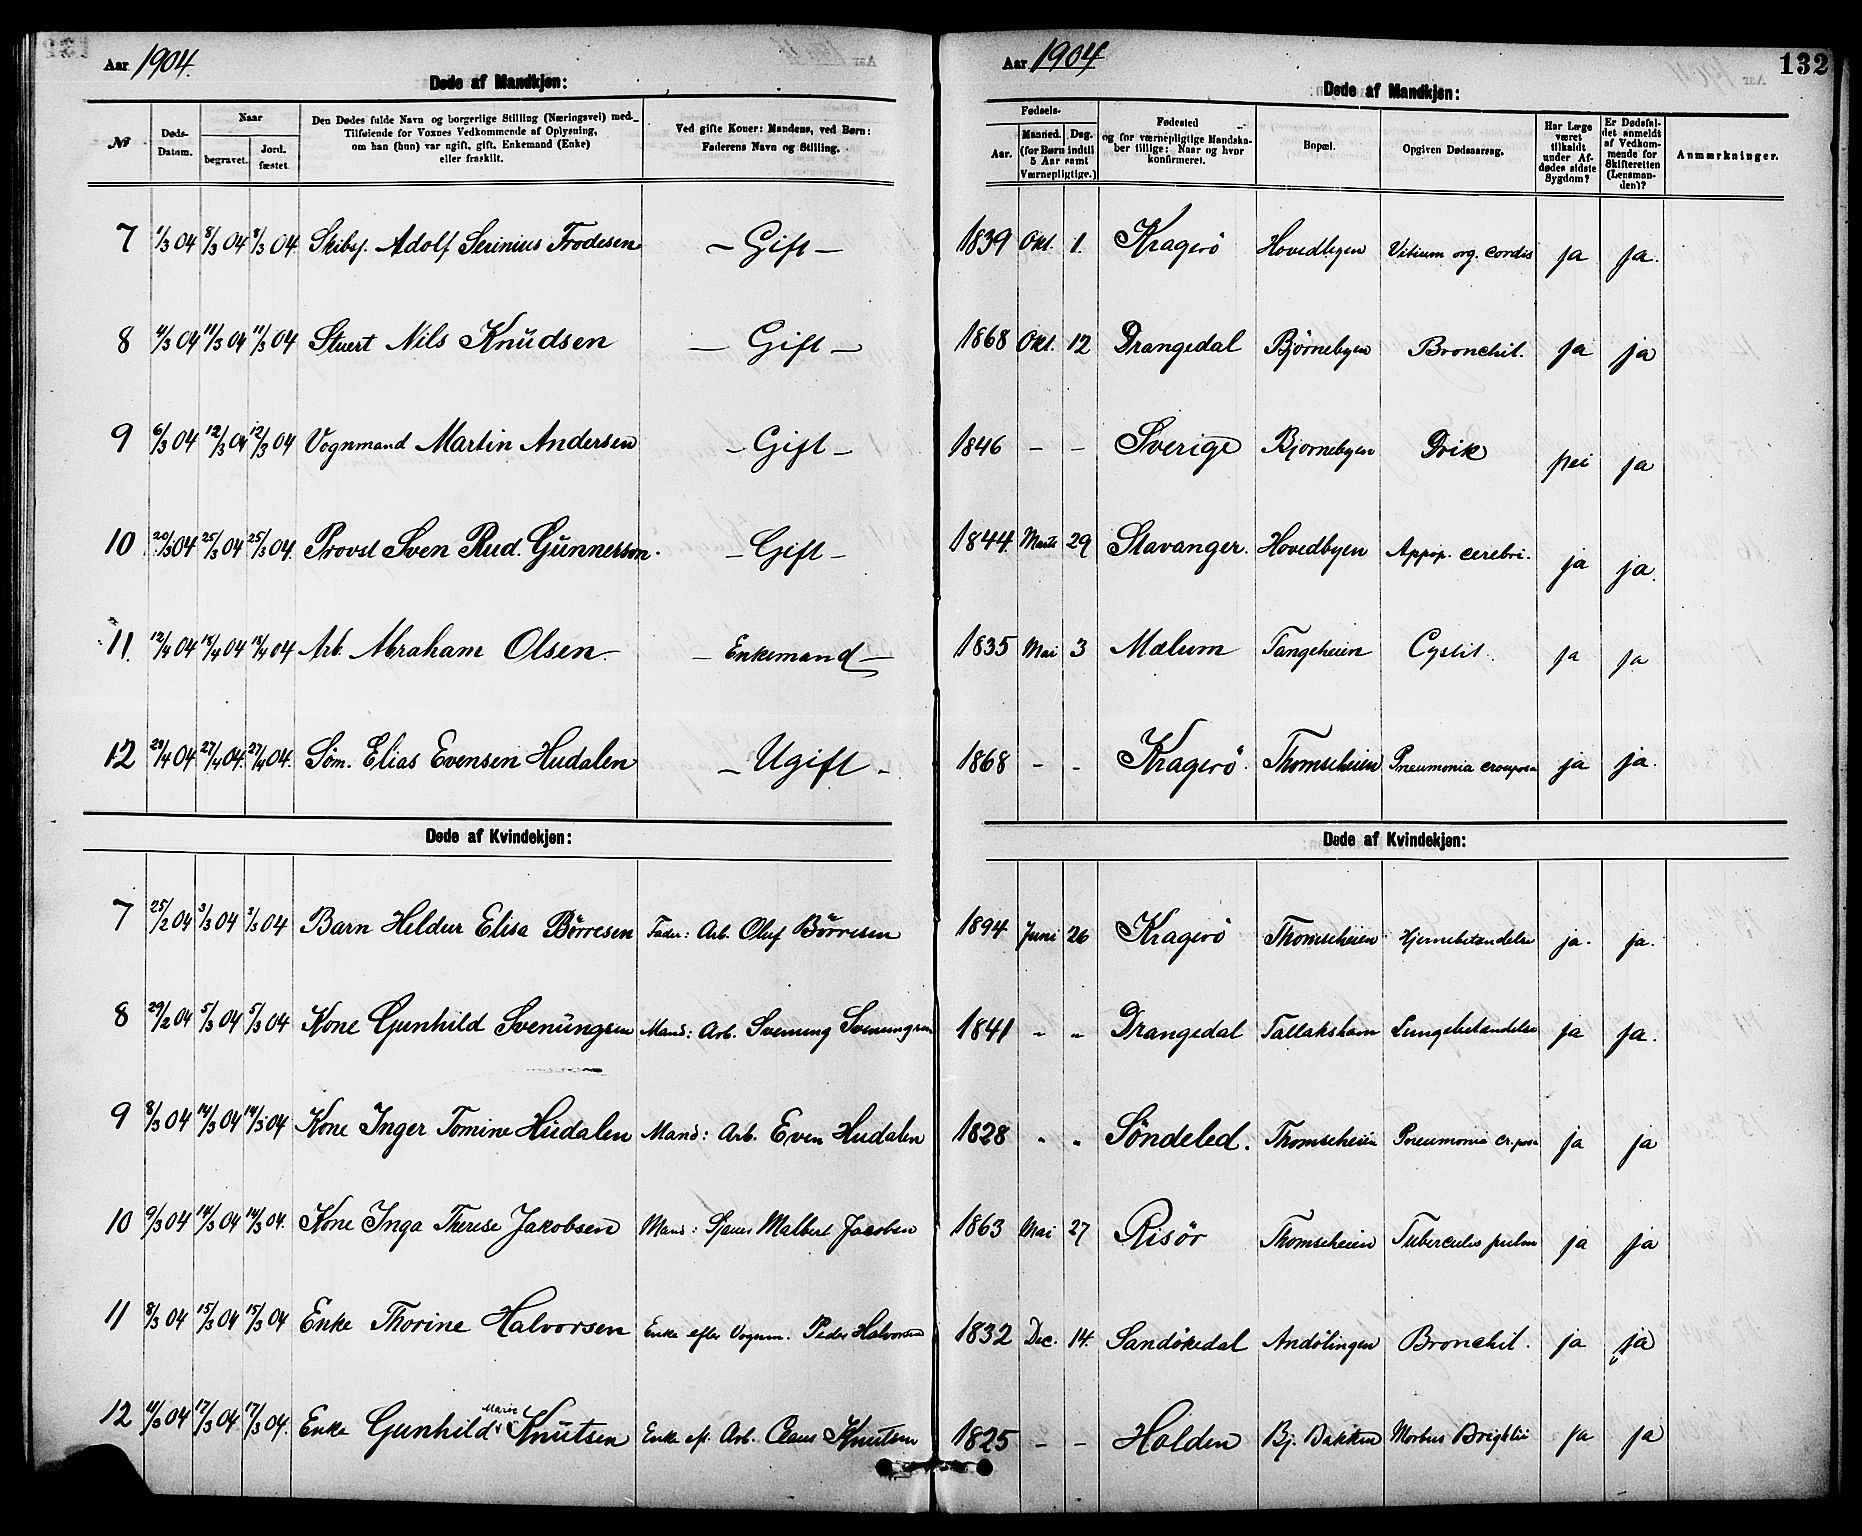 Aar 1904.
Døde af Mandkjøn:
№ Døds-Datum. Naar begravet. Jord. fæstet. Den Dødes fulde Navn og borgerlige Stilling (Næringsvei) med Tilføiende for Voxnes Vedkommende af Oplysning, om han (hun) var ugift, gift, Enkemand (Enke) eller fraskilt. Ved gifte Koner: Mandens, ved Børn: Faderens Navn og Stilling.
7 1/3 04 8/3 04 8/3 04 Skibsf. Adolf Serinius Frodesen – Gift –
8 4/3 04 11/3 04 11/3 04 Stuert Nils Knudsen – Gift –
9 6/3 04 12/3 04 12/3 04 Vognmand Martin Andersen – Gift –
10 20/3 04 25/3 04 25/3 04. Provst Sven Rud. Gunnerson. – Gift –
11. 12/4 04 18/4 04 18/4 04 Arb. Abraham Olsen – Enkemand –
12 27/4 04. 27/4 04. Søm. Elias Evensen Hudalen – Ugift –
Døde af Kvindekjøn:
7 25/2 04 3/3 04 3/3 04 Barn Heldur Elisa Börresen Fader: Arb. Oluf Börresen
8 29/2 04 5/3 04 5/3 04 Kone Gunhild Svenungsen Mand: Arb. Svenung Svenungsen
9 8/3 04 14/3 04 14/3 04 Kone Inger Tomine Hudalen Mand: Arb. Even Hudalen
10 9/3 04 14/3 04 14/3 04. Kone Inga Therese Jakobsen Mand: Sjauer Malbert Jacobsen
11 8/3 04 15/3 04 15/3 04 Enke Thorine Halvorsen Enke efter Vognm. Peder Halvorsen
12 11/3 04 17/3 04 17/3 04. Enke Gunhild Marie Knutsen Enke ef. Arb. Claus Knutsen
Aar 1904
132
Døde af Mandkjøn:
Fødsels- Aar. Maaned. Dag. (for Børn indtil 5 Aar samt Værnepligtige.) Fødested og for værnepligtige Mandskaber tillige: Naar og hvor konfirmeret. Bopæl. Opgiven Dødsaarsag. Har Læge været tilkaldt under Afdødes sidste Sygdom? Er Dødsfaldet anmeldt af Vedkommende for Skifteretten (Lensmanden)? Anmærkninger.
1839 Okt. 1. Kragerö Hovedbyen Vitium org. cordis ja ja.
1868 Okt. 12 Drangedal Bjørnebyen Bronchit. ja ja
1846 – – Sverige Bjørnebyen Drik nei ja
1844. Marts 29 Stavanger. Hovedbyen Appop. cerebri. ja ja.
1835 Mai 3 Mælum Tangeheien Cystit. ja ja
1868 – – Kragerö. Thomseheien Pneumonia crouposa ja ja.
Døde af Kvindekjøn:
1894 Juni 26 Kragerö Thomseheien Hjernebetændelse ja. ja.
1841 „ „ Drangedal Tallakshavn Lungebetændelse ja ja.
1828 „ „ Söndeled. Thomseheien Pneumonia cr.posa ja ja
1863 Mai 27 Risör Thomseheien Tuberculos pulm ja ja
1832 Dec. 14. Sandökedal Andölingen Bronchit. ja ja
1825 – – Holden Bj. Bakken Morbus Brightii ja ja